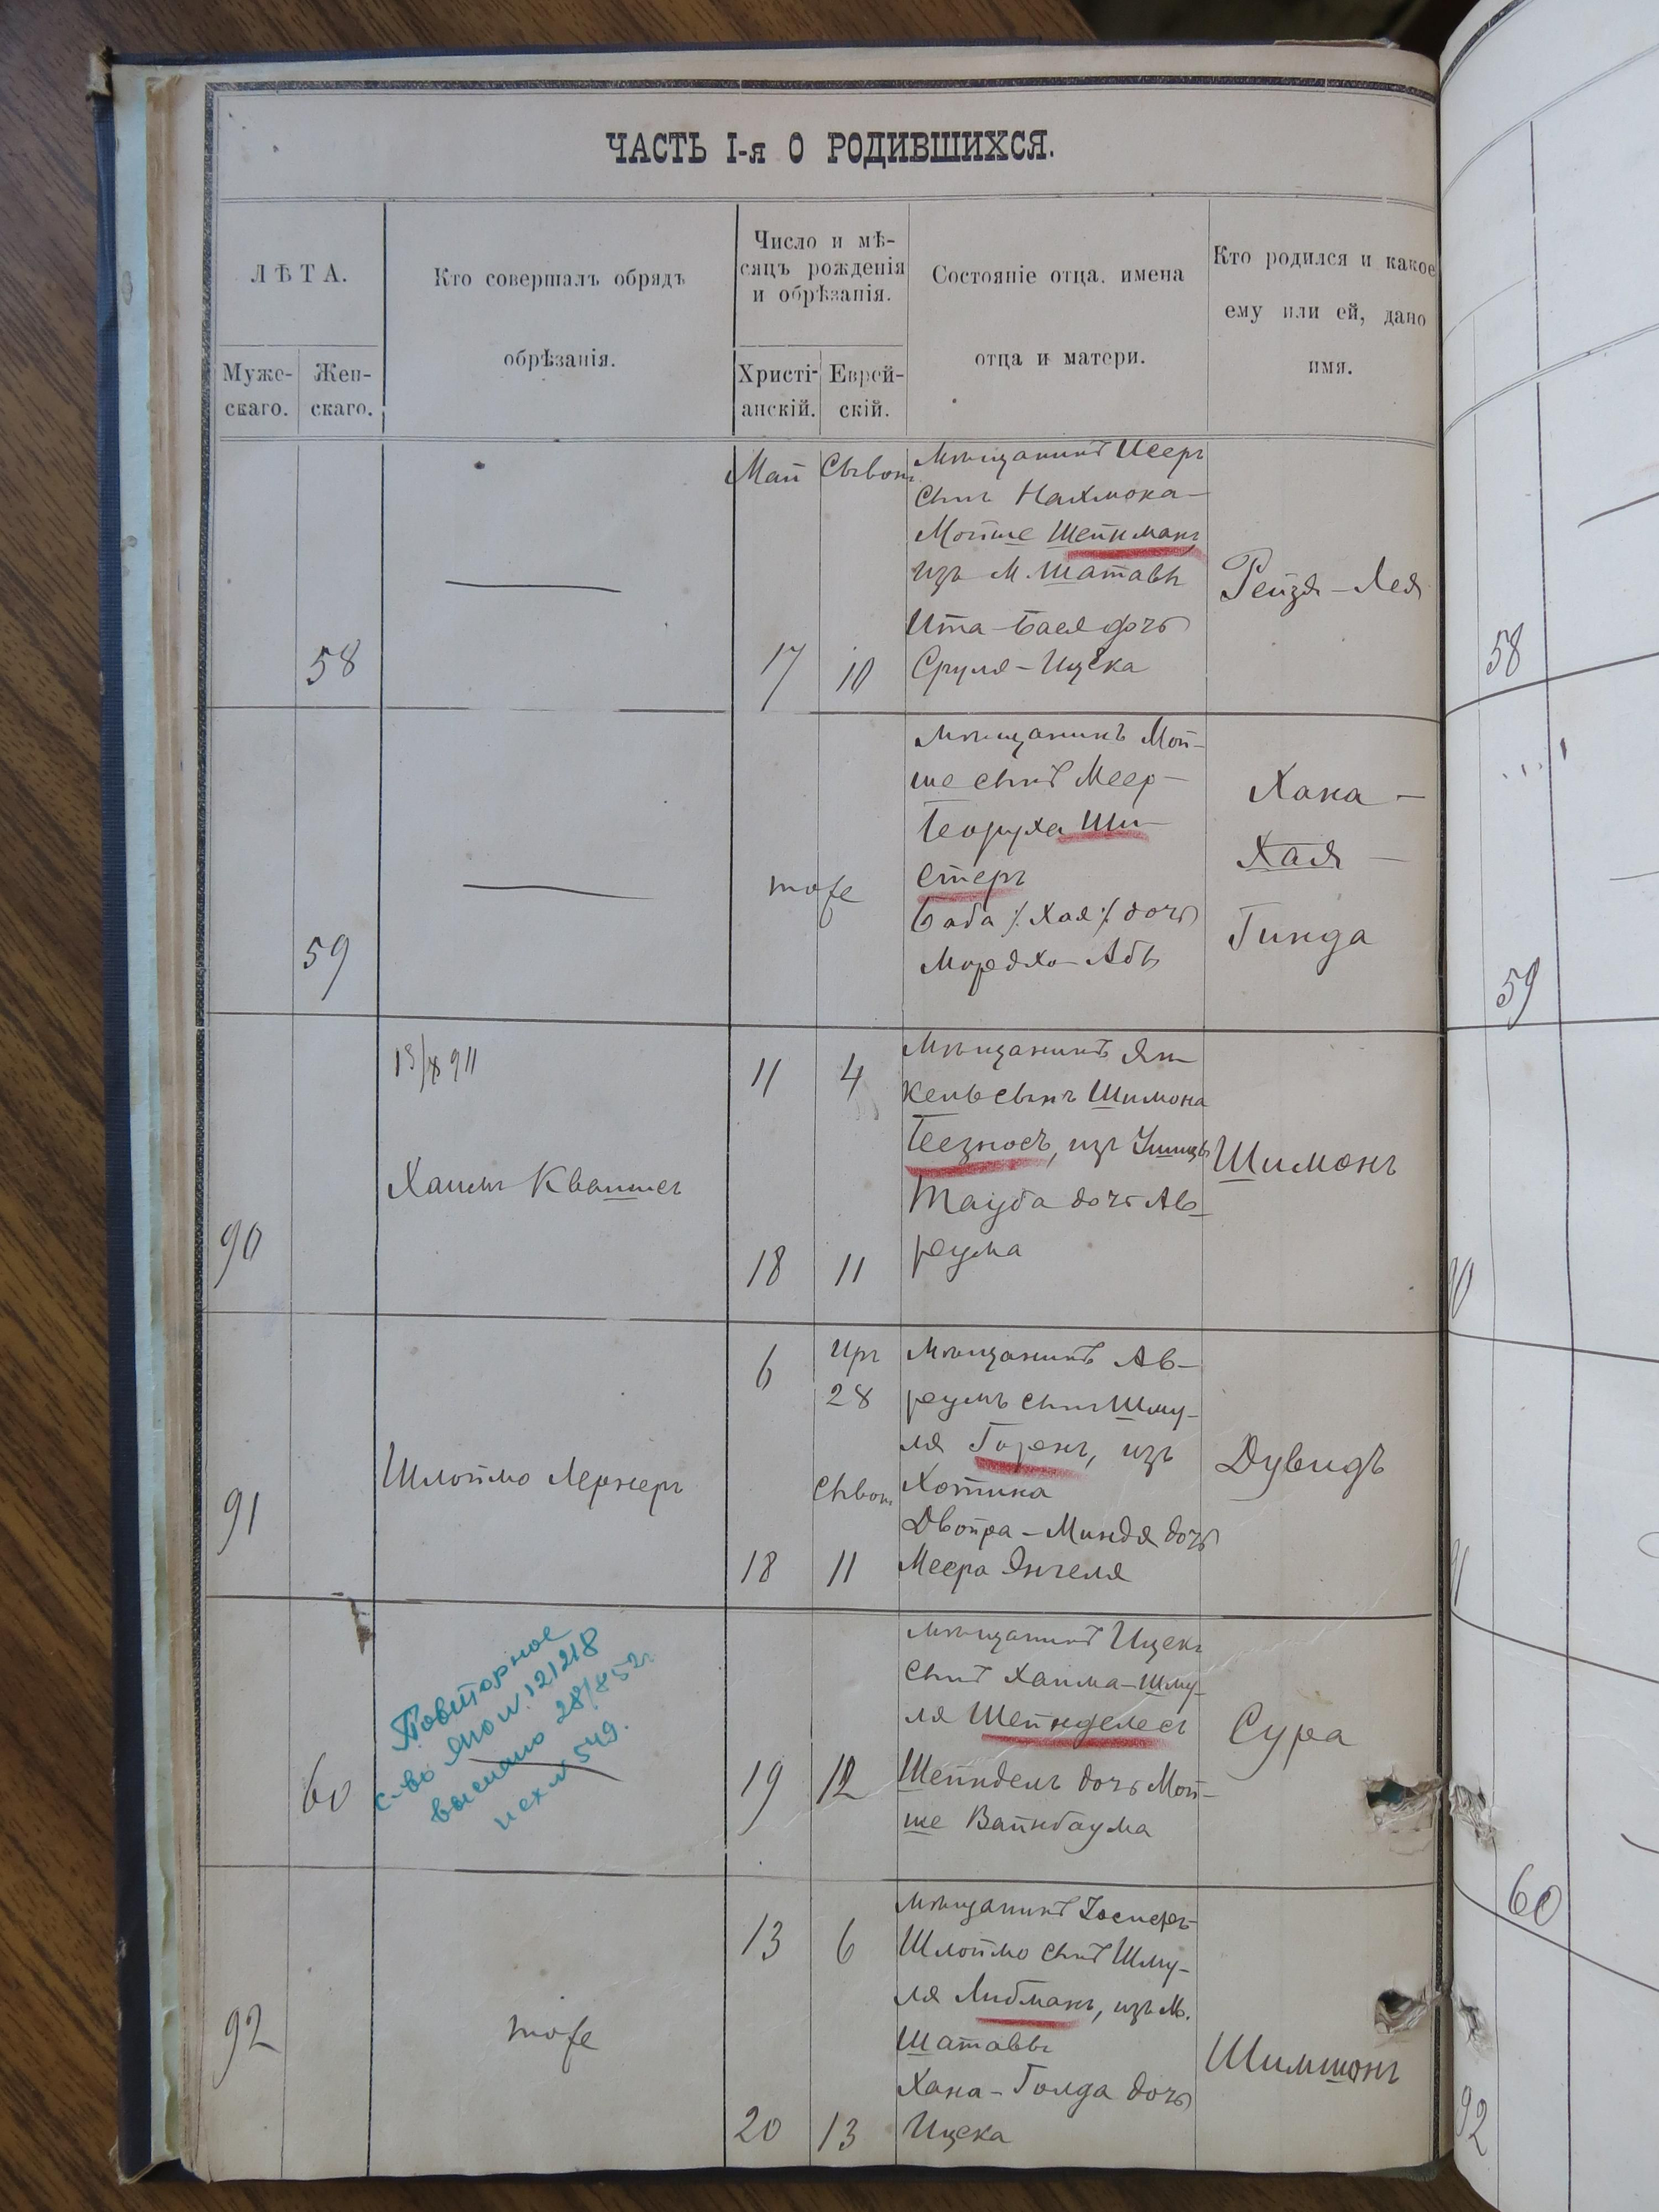 ЧАСТЬ I-я О РОДИВШИХСЯ.
ЛѢТА.
Муже-
скаго.
Жен-
скаго.
Кто совершалъ обрядъ
обрѣзанія.
Число и мѣ-
сяцъ рожденія
и обрѣзанія.
Христі-
анскій.
Еврей-
скій.
Состояніе отца, имена
отца и матери.
Кто родился и какое
ему или ей, дано
имя.
58
Май
17
Сывонъ
10
Мѣщанинъ Исеръ
сынъ Нахмона-
Мойше Шейнманъ
изъ М. Шатавы
Ита-Бася дочь
Сруля-Ицека
Рейзя-Лея
58
59
тоже
Мѣщанинъ Мой-
ше сынъ Меер-
Боруха Ши-
стеръ
Баба /. Хая ./ дочь
Мордхо-Абы
Хана-
Хая-
Гинда
59
90
Хаимъ Квашисъ
11
4
18
11
Мѣщанинъ Ян-
кель сынъ Шимона
Безносъ, изъ Ушицы
Тауба дочь Ав-
рума
Шимонъ
91
Шлоймо Лернеръ
6
Иръ
28
Сывонъ
18
11
Мѣщанинъ Ав-
румъ сынъ Шму-
ля Горенъ, изъ
Хотина
Двойра-Миндя дочь
Меера Энгеля
Дувидъ
60
Повторное
с-во ЯЮ N. 121218
выслано 28/8 52г.
исх N 549.
19
12
Мѣщанинъ Ицекъ
сынъ Хаима-Шму-
ля Шейнделесъ
Шейндель дочь Мой-
ше Вайнбаума
Сура
60
92
тоже
13
6
20
13
Мѣщанинъ Іосифъ-
Шлоймо сынъ Шму-
ля Либманъ, изъ М.
Шатавы
Хана-Голда дочь
Ицека
Шимшонъ
92